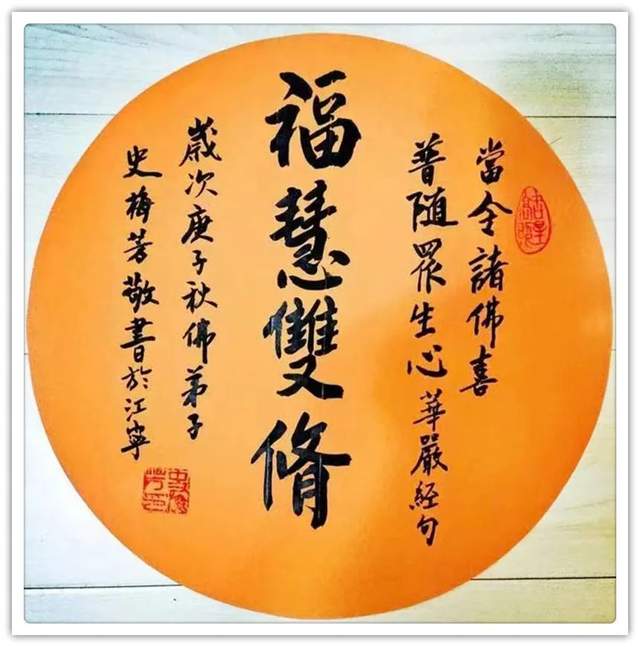 當令諸佛喜
普随眾生心華嚴經句
福慧雙脩
歲次庚子秋佛弟子
史梅芳敬書於江寧